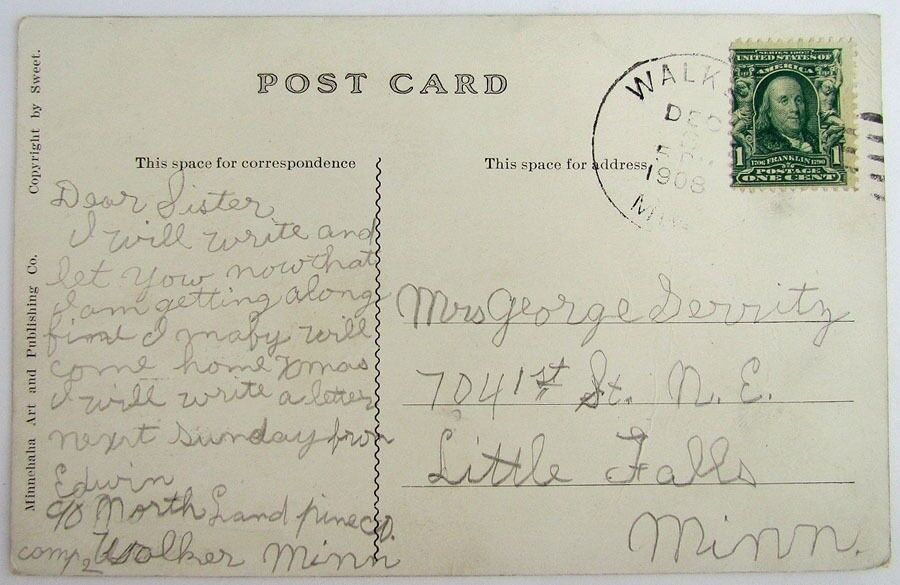 POST CARD
Copyright by Sweet.
Minnehaha Art and Publishing Co.
This space for correspondence
This space for address
WALK
DEC
1908
SERIES 1902
UNITED STATES OF
AMERICA
1706 FRANKLIN 1790
1 1
POSTAGE
ONE CENT
Dear Sister
I will write and
let yow now that
I am getting along
fine I maby will
come home Xmas
I will write a letter
next Sunday from
Edwin
c/o North Land pine co.
camp 2 Walker Minn
Mrs George Gerritz
704 1st St. N. E.
Little Falls
Minn.